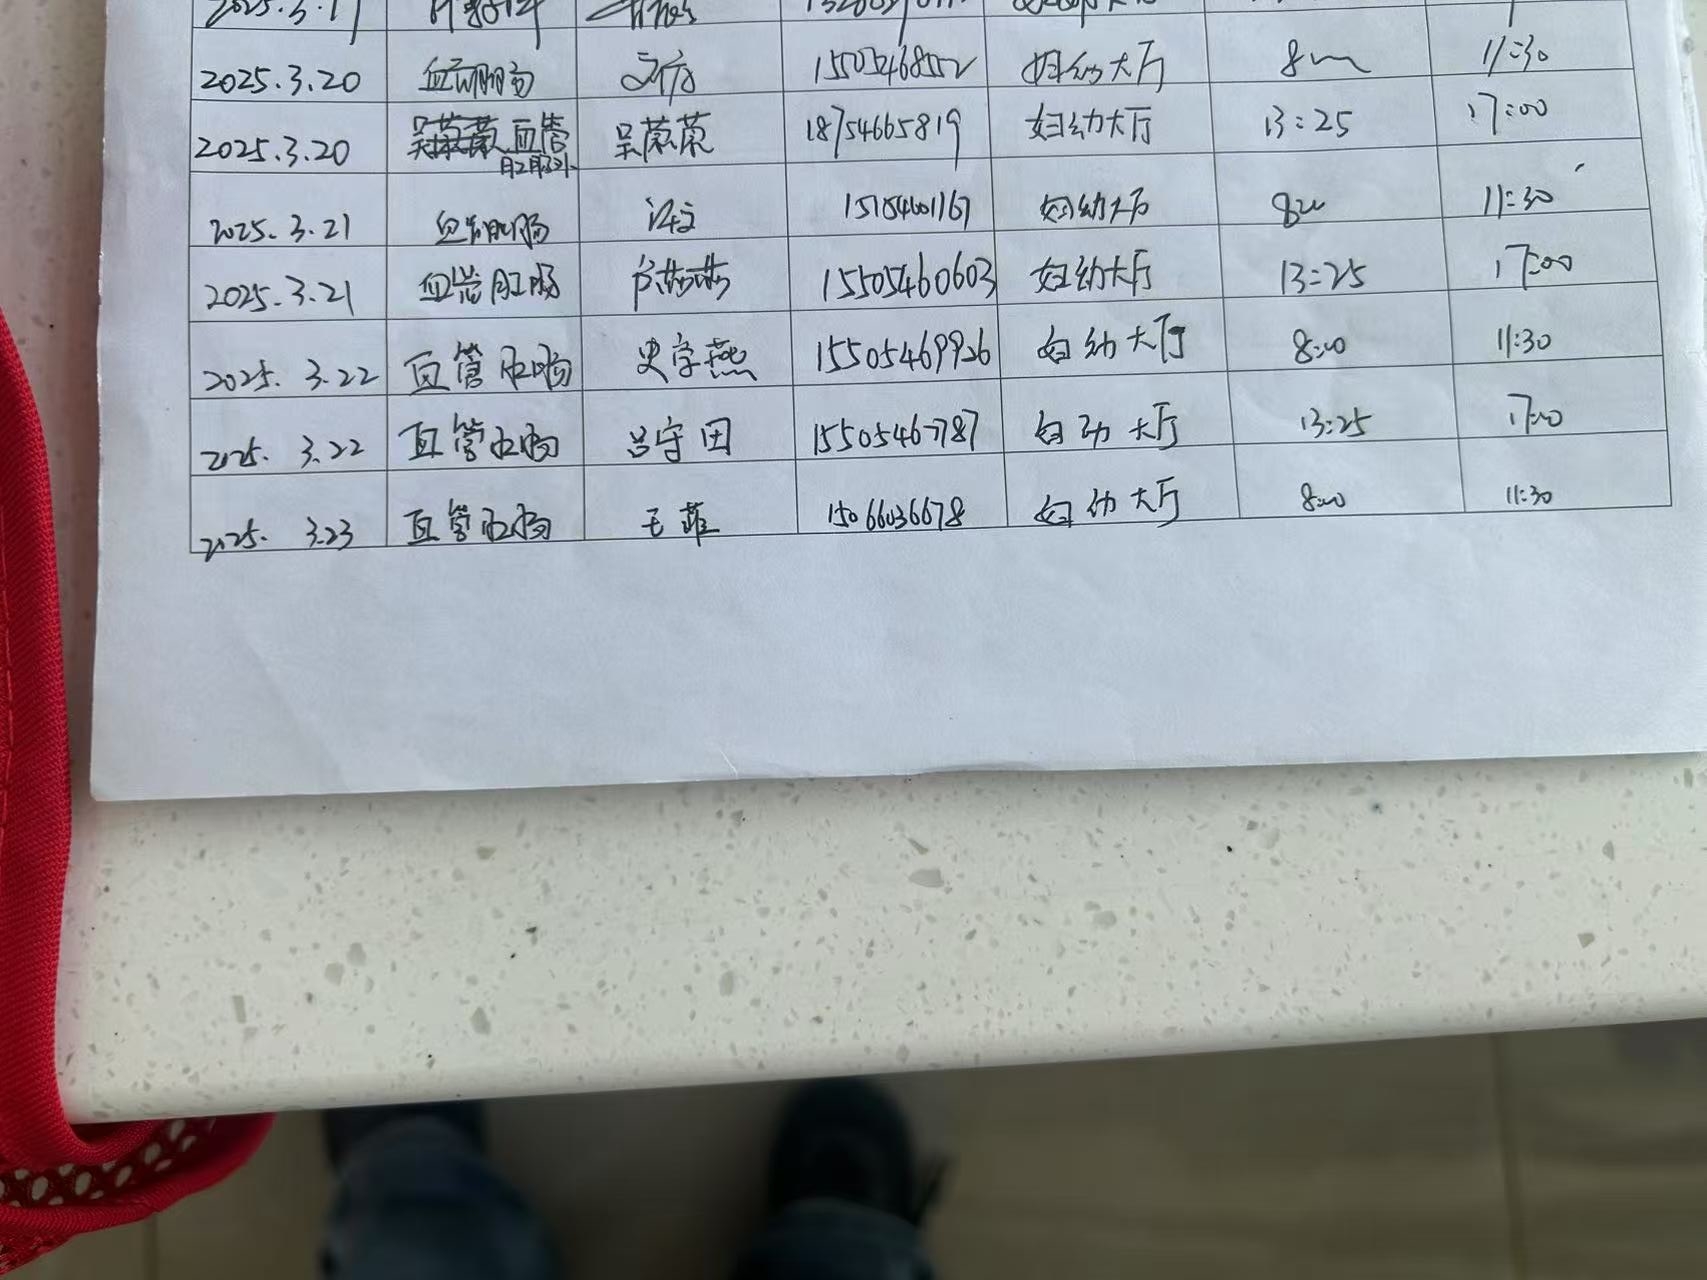 2025.3.20 血管肛肠 15505468552 妇幼大厅 8:00 11:30
2025.3.20 血管肛肠外 吴蒙蒙 18754665819 妇幼大厅 13:25 17:00
2025.3.21 血管肛肠 妇幼大厅 8:00 11:30
2025.3.21 血管肛肠 15505460603 妇幼大厅 13:25 17:00
2025. 3.22 血管肛肠 史字燕 15505469926 妇幼大厅 8:00 11:30
2025. 3.22 血管肛肠 吕守田 15505467787 妇幼大厅 13:25 17:00
2025. 3.23 血管肛肠 王菲 15066036678 妇幼大厅 8:00 11:30